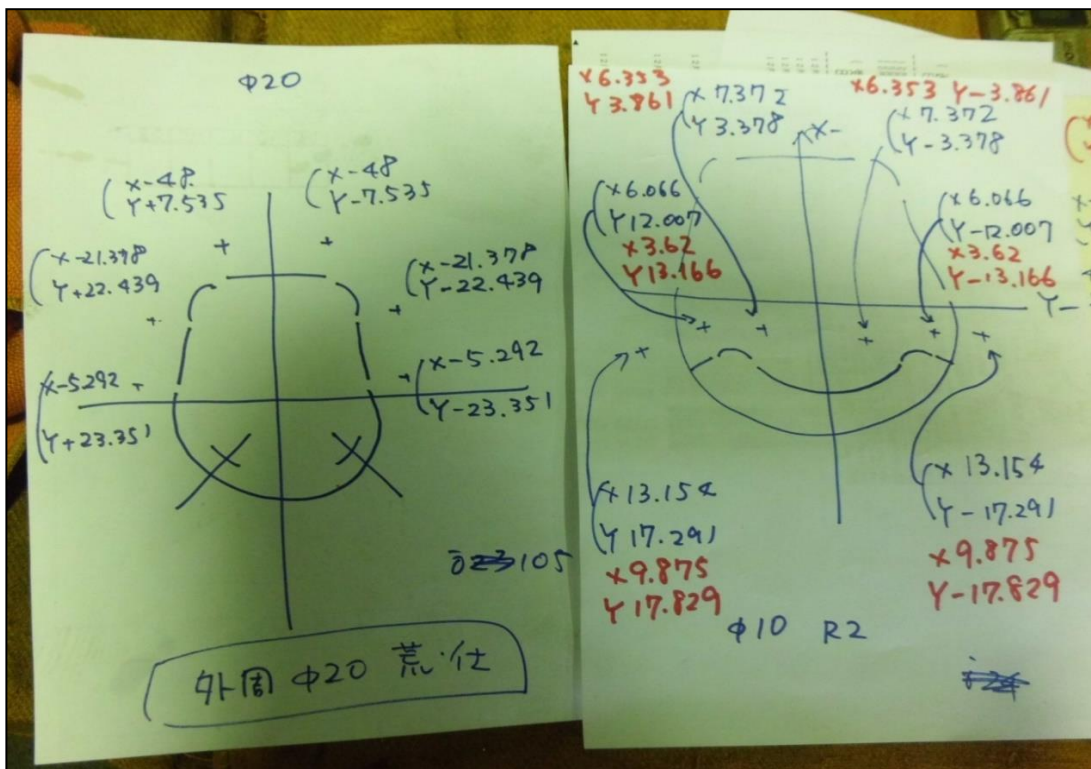 Φ20
X-48.
Y+7.535
X-48.
Y-7.535
X-21.378
Y+22.439
X-21.378
Y-22.439
X-5.292
Y+23.351
X-5.292
Y-23.351
105
外周 Φ20 荒・仕
X6.353
Y3.861
X7.372
Y3.378
X-
X6.353 Y-3.861
X7.372
Y-3.378
X6.066
Y12.007
X3.62
Y13.166
X6.066
Y-12.007
X3.62
Y-13.166
Y-
X13.154
Y17.291
X9.875
Y17.829
X13.154
Y-17.291
X9.875
Y-17.829
Φ10 R2